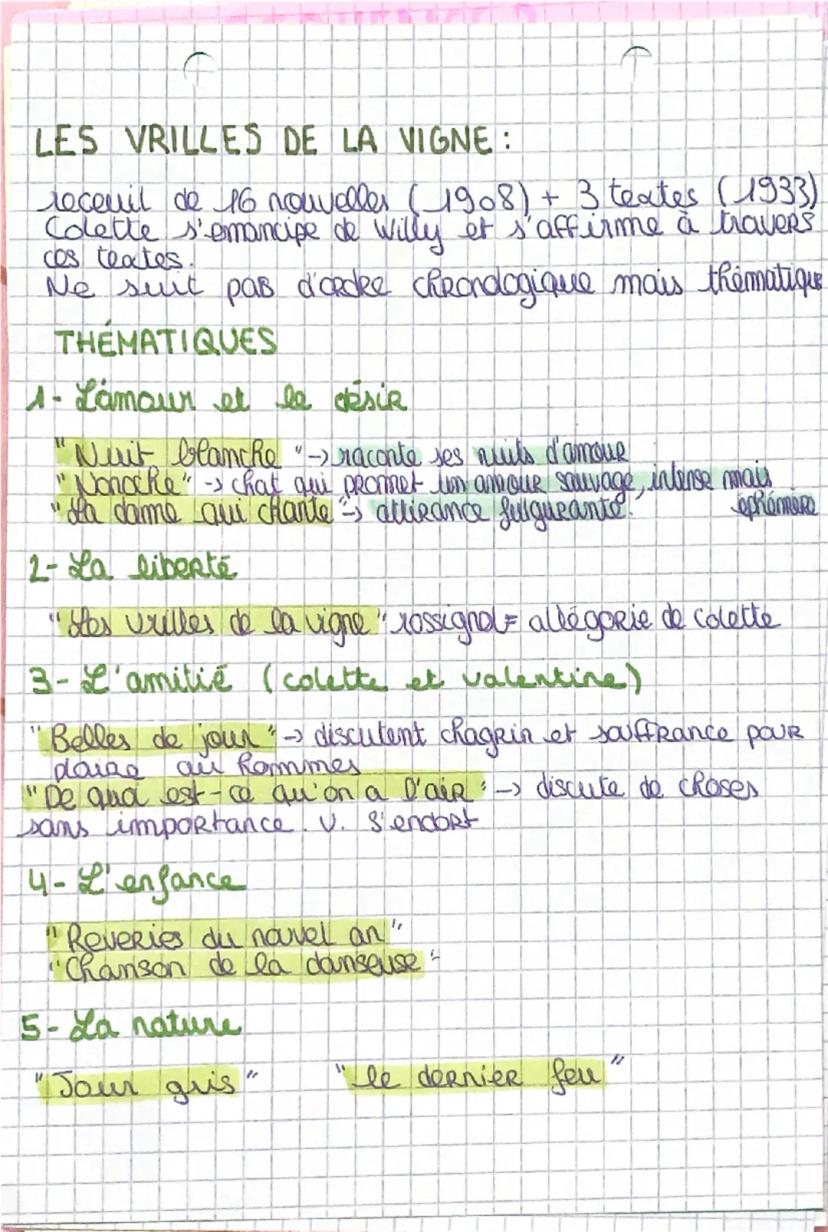 LES VRILLES DE LA VIGNE :
receuil de 16 nouvelles (1908) + 3 textes (1933)
Colette s'emancipe de Willy et s'affirme à travers
ces textes.
Ne suit pas d'ordre chronologique mais thématique
THÉMATIQUES
1- L'amour et le désir
"Nuit blanche" -> raconte ses nuits d'amour
"Nonoche" -> chat qui promet un amour sauvage, intense mais
"La dame qui chante" -> attirance fulgurante. éphémère
2- La liberté
"Les vrilles de la vigne" rossignol = allégorie de Colette
3- L'amitié (colette et valentine)
"Belles de jour" -> discutent chagrin et souffrance pour
plaire au hommes
"De quoi est-ce qu'on a l'air" -> discute de choses
sans importance. V. s'endort
4- L'enfance
"Reveries du nouvel an"
"Chanson de la danseuse"
5- La nature
"Jour gris" "le dernier feu"